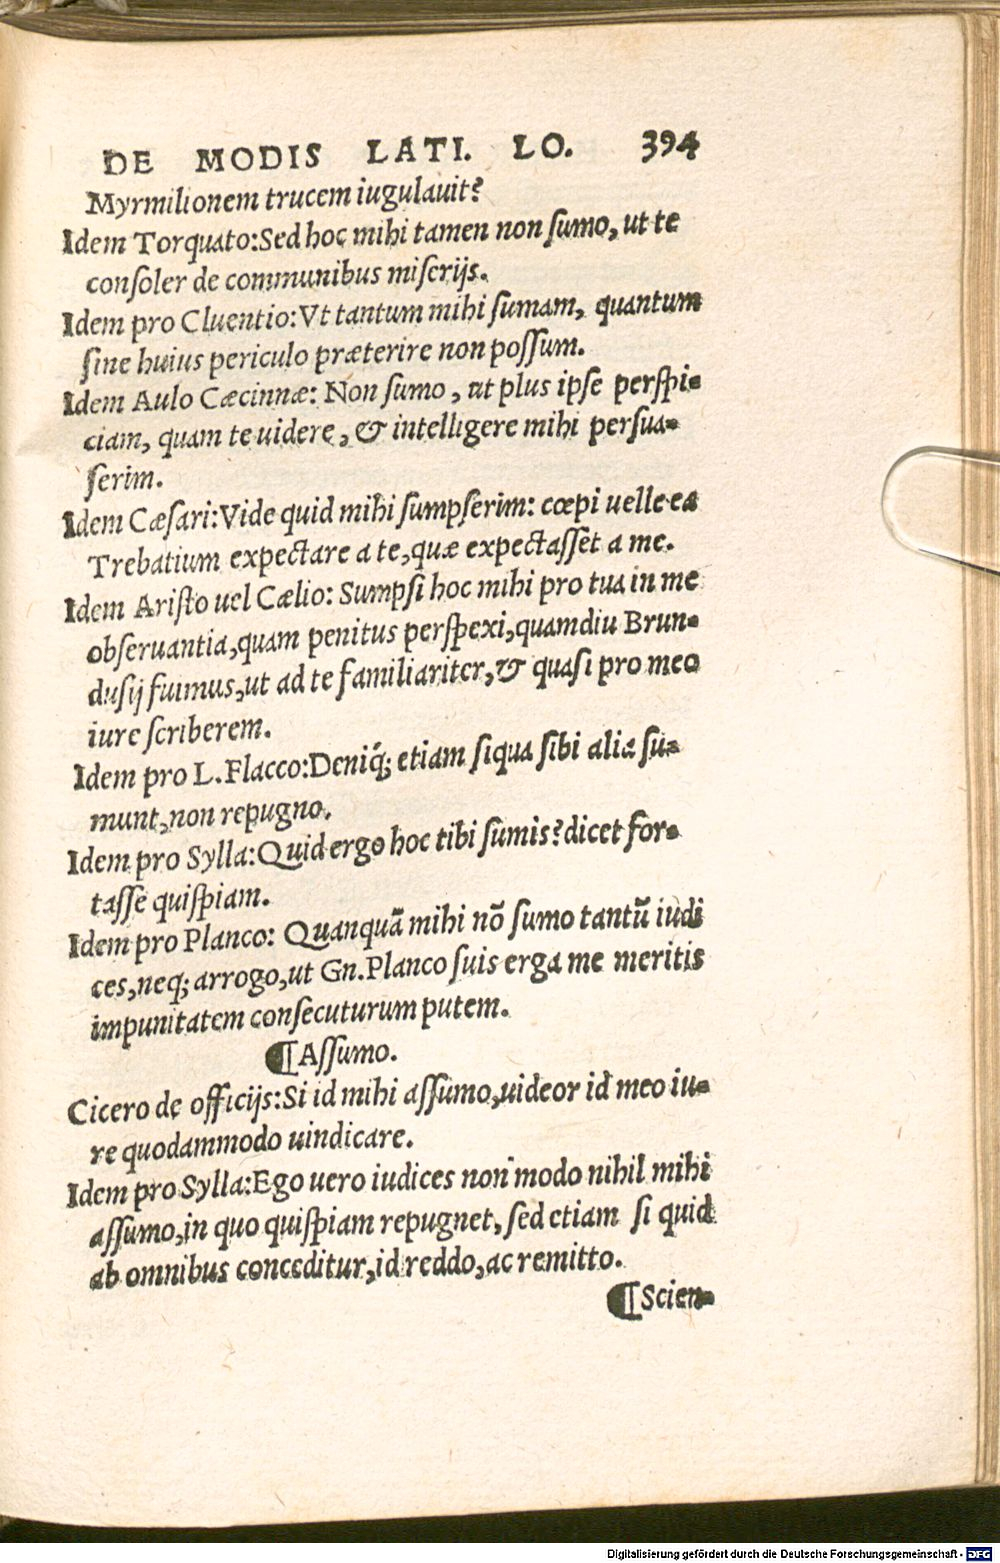 DE MODIS LATI. LO. 394
Myrmilionem trucem iugulauit?
Idem Torquato:Sed hoc mihi tamen non ſumo, ut te
conſoler de communibus miſerijs.
Idem pro Cluentio:Vt tantum mihi ſumam, quantum
ſine huius periculo præterire non poſſum.
Idem Aulo Cæcinnæ: Non ſumo, ut plus ipſe perſpi-
ciam, quam te uidere, & intelligere mihi perſua-
ſerim.
Idem Cæſari:Vide quid mihi ſumpſerim: cœpi uelle ea
Trebatium expectare a te,quæ expectaſſet a me.
Idem Ariſto uel Cælio: Sumpſi hoc mihi pro tua in me
obſeruantia,quam penitus perſpexi,quamdiu Brun-
duſij fuimus,ut ad te familiariter,& quaſi pro meo
iure ſcriberem.
Idem pro L.Flacco:Deniq́; etiam ſiqua ſibi alia ſu-
munt,non repugno.
Idem pro Sylla:Quid ergo hoc tibi ſumis?dicet for-
taſſe quiſpiam.
Idem pro Planco: Quanquã mihi nõ ſumo tantũ iudi
ces,neq; arrogo,ut Gn.Planco ſuis erga me meritis
impunitatem conſecuturum putem.
¶Aſſumo.
Cicero de officijs:Si id mihi aſſumo,uideor id meo iu-
re quodammodo uindicare.
Idem pro Sylla:Ego uero iudices non modo nihil mihi
aſſumo,in quo quiſpiam repugnet, ſed etiam ſi quid
ab omnibus conceditur,id reddo,ac remitto.
¶Scien-
Digitalisierung gefördert durch die Deutsche Forschungsgemeinschaft - DFG